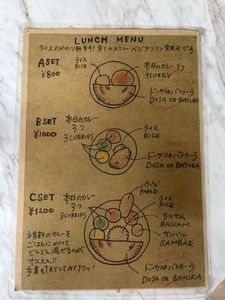 LUNCH MENU
ライスおかわり無料! 全てのメニューベジタリアン変更可です
A SET
¥800
ライス
RICE
本日のカレー 1つ
1 CURRY
ドーサ or バトゥーラ
DOSA OR BATURA
B SET
¥1000
本日のカレー
3つ
3 CURRIES
ライス
RICE
ドーサ or バトゥーラ
DOSA OR BATURA
C SET
¥1200
本日のカレー
3つ
3 CURRIES
パパド
PAPAD
ライス
RICE
ラッサム
RASSAM
サンバル
SAMBAR
ドーサ or バトゥーラ
DOSA OR BATURA
複数のカレーを
ごはんにかけて
どんどん混ぜるのが
オススメ!!
手食もTRYしてみて下さい!